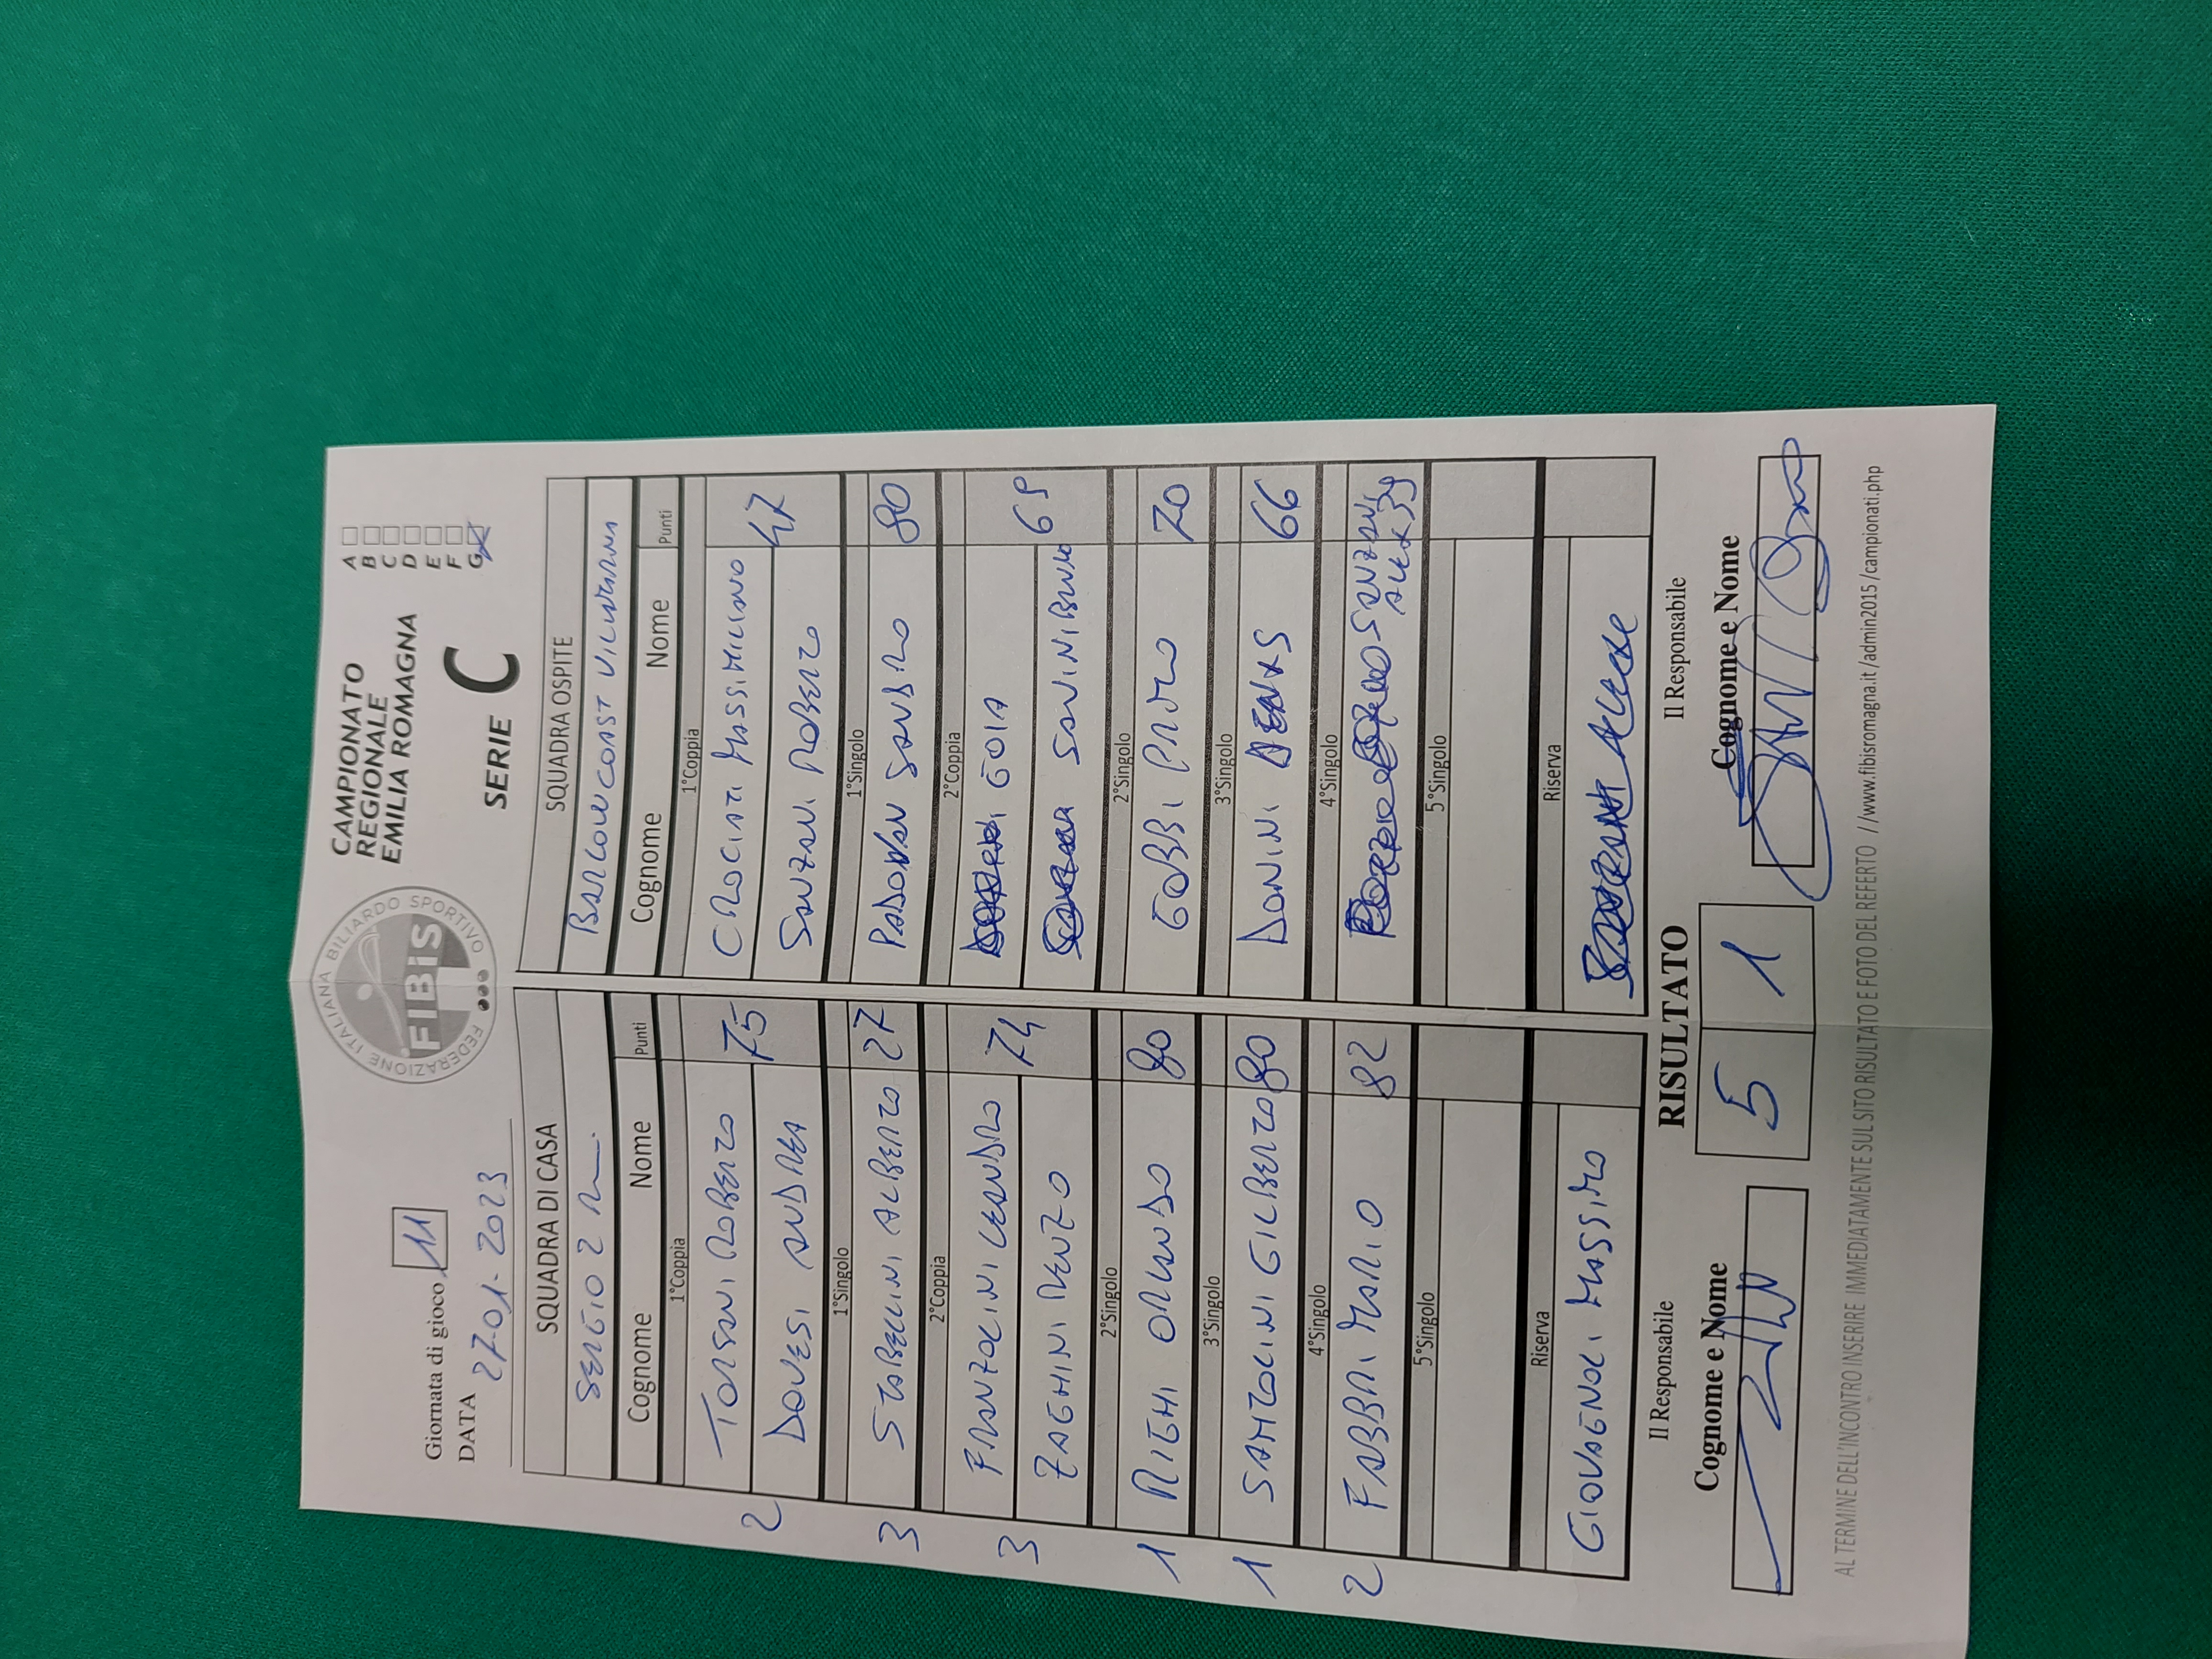 Giornata di gioco 11
DATA 27-01-2023
FEDERAZIONE ITALIANA BILIARDO SPORTIVO
FIBiS
CAMPIONATO
REGIONALE
EMILIA ROMAGNA
SERIE C
A
B
C
D
E
F
G
SQUADRA DI CASA
SERGIO 2
Cognome Nome Punti
1°Coppia
TORSANI ROBERTO
DOVESI ANDREA 75
1°Singolo
STABELLINI ALBERTO 27
2°Coppia
FRANZOLINI LEANDRO
ZAGHINI RENZO 74
2°Singolo
RIGHI ORLANDO 80
3°Singolo
SANTOLINI GILBERTO 80
4°Singolo
FABBRI MARIO 82
5°Singolo
Riserva
GIOVAGNOLI MASSIMO
2
3
3
1
1
2
SQUADRA OSPITE
Cognome Nome Punti
1°Coppia
CROCIATI MASSIMILIANO
SANZANI ROBERTO 47
1°Singolo
PADOVAN SANDRO 80
2°Coppia
GOIA
SAVINI BRUNO 69
2°Singolo
GOBBI 70
3°Singolo
DONINI DENIS 66
4°Singolo
SANZANI
ALEX 39
5°Singolo
Riserva
Il Responsabile
Cognome e Nome
RISULTATO
5 1
Il Responsabile
Cognome e Nome
AL TERMINE DELL'INCONTRO INSERIRE IMMEDIATAMENTE SUL SITO RISULTATO E FOTO DEL REFERTO //www.fibisromagna.it/admin2015/campionati.php